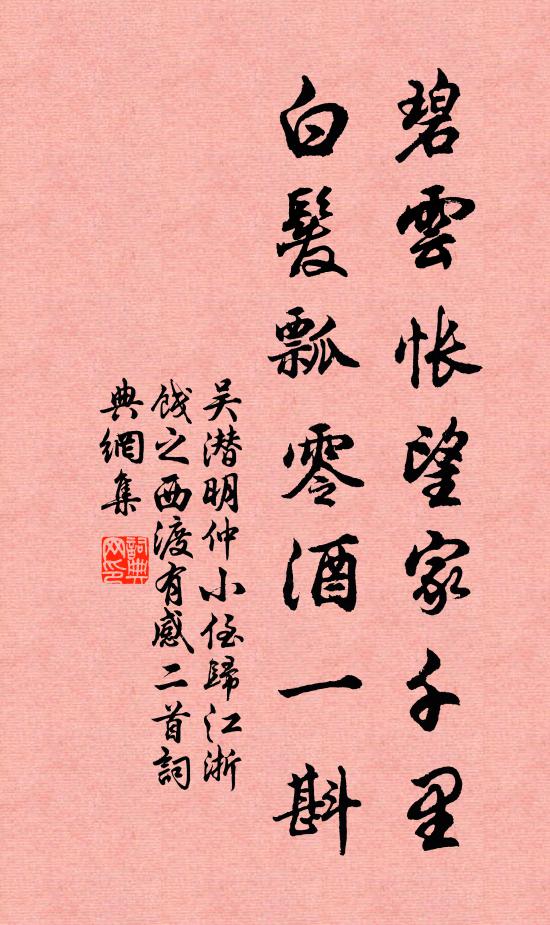 碧雲悵望家千里
白髮瓢零酒一斟
吴潜明仲小侄歸江浙
餞之西渡有感二首詞
典網集
詞典
网印